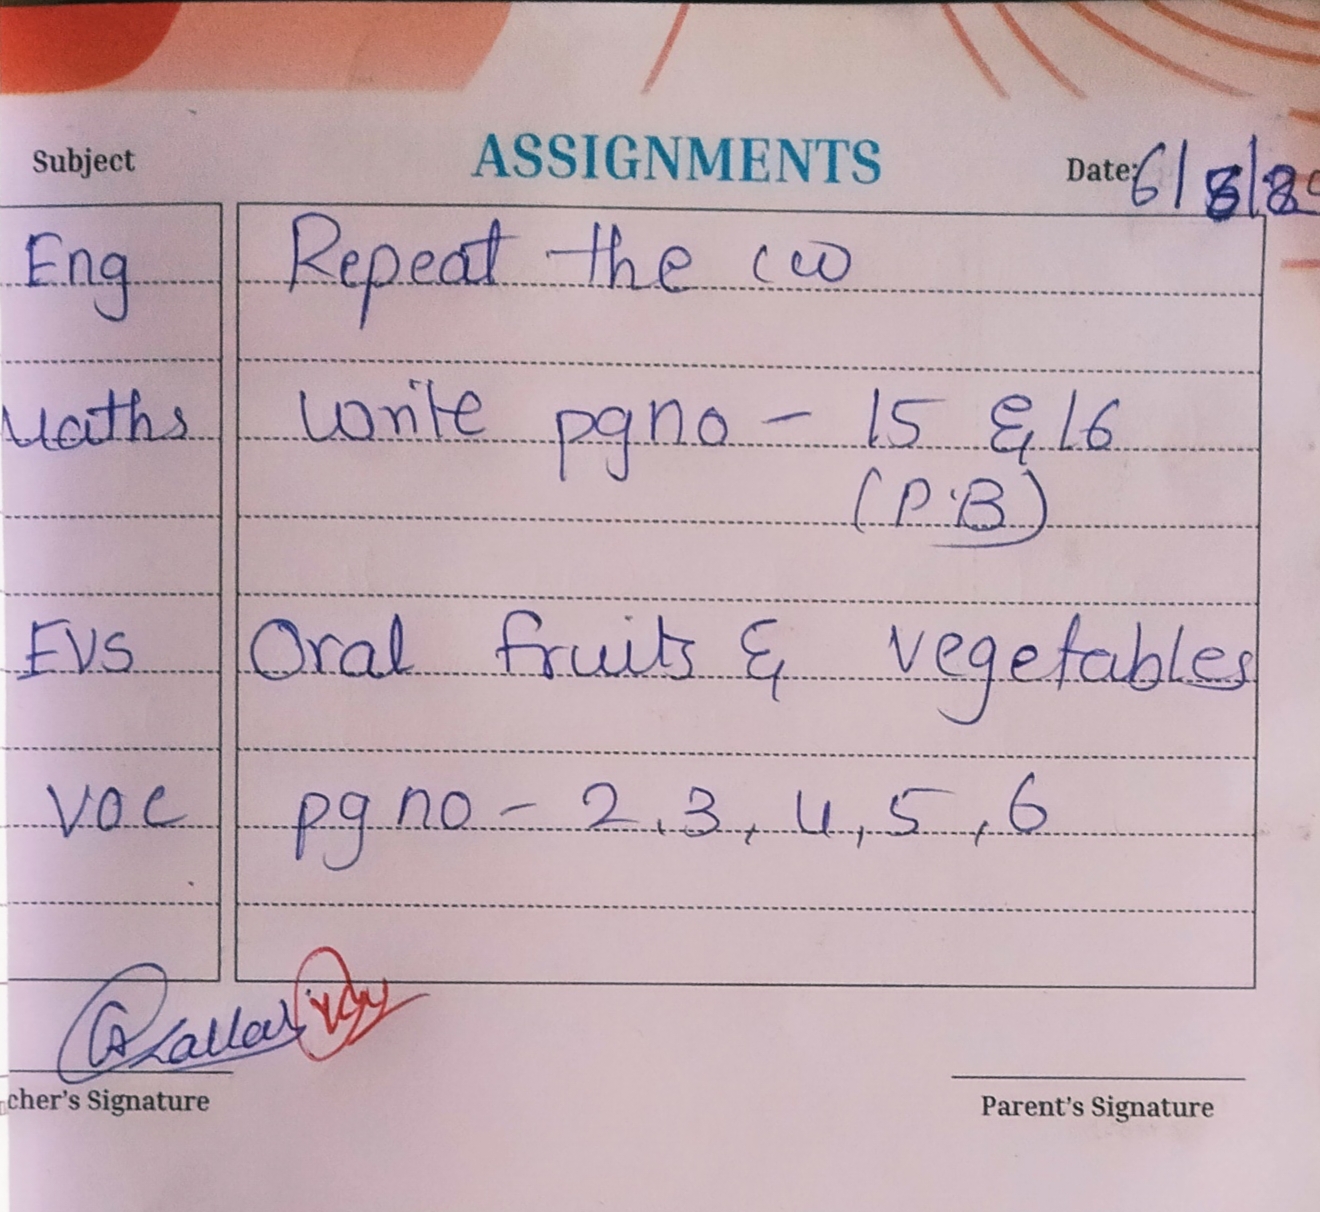 Subject ASSIGNMENTS Date: 6/8/2
Eng Repeat the cw
Maths Write pg no - 15 & 16
(P.B)
EVS Oral fruits & vegetables
VOC pg no - 2, 3, 4, 5, 6
cher's Signature Parent's Signature